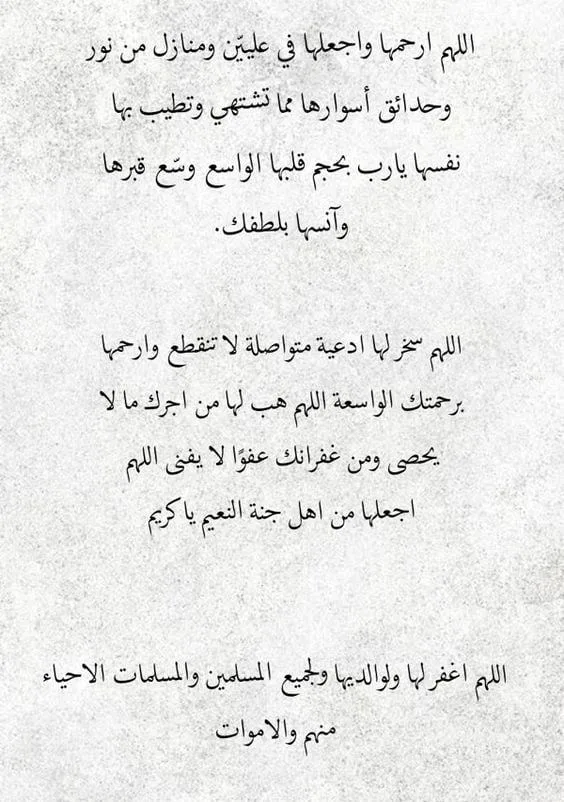 اللهم ارحمها واجعلها في علييّن ومنازل من نور
وحدائق أسوارها مما تشتهي وتطيب بها
نفسها يارب بحجم قلبها الواسع وسّع قبرها
وآنسها بلطفك.
اللهم سخر لها ادعية متواصلة لا تنقطع وارحمها
برحمتك الواسعة اللهم هب لها من اجرك ما لا
يحصى ومن غفرانك عفوًا لا يفنى اللهم
اجعلها من اهل جنة النعيم ياكريم
اللهم اغفر لها ولوالديها ولجميع المسلمين والمسلمات الاحياء
منهم والاموات